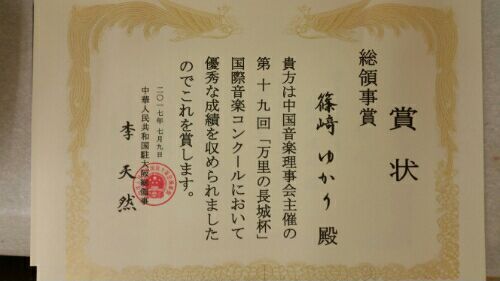 賞状
総領事賞
篠﨑ゆかり 殿
貴方は中国音楽理事会主催の
第十九回「万里の長城杯」
国際音楽コンクールにおいて
優秀な成績を収められました
のでこれを賞します。
二〇一七年七月九日
中華人民共和国駐大阪総領事
李天然